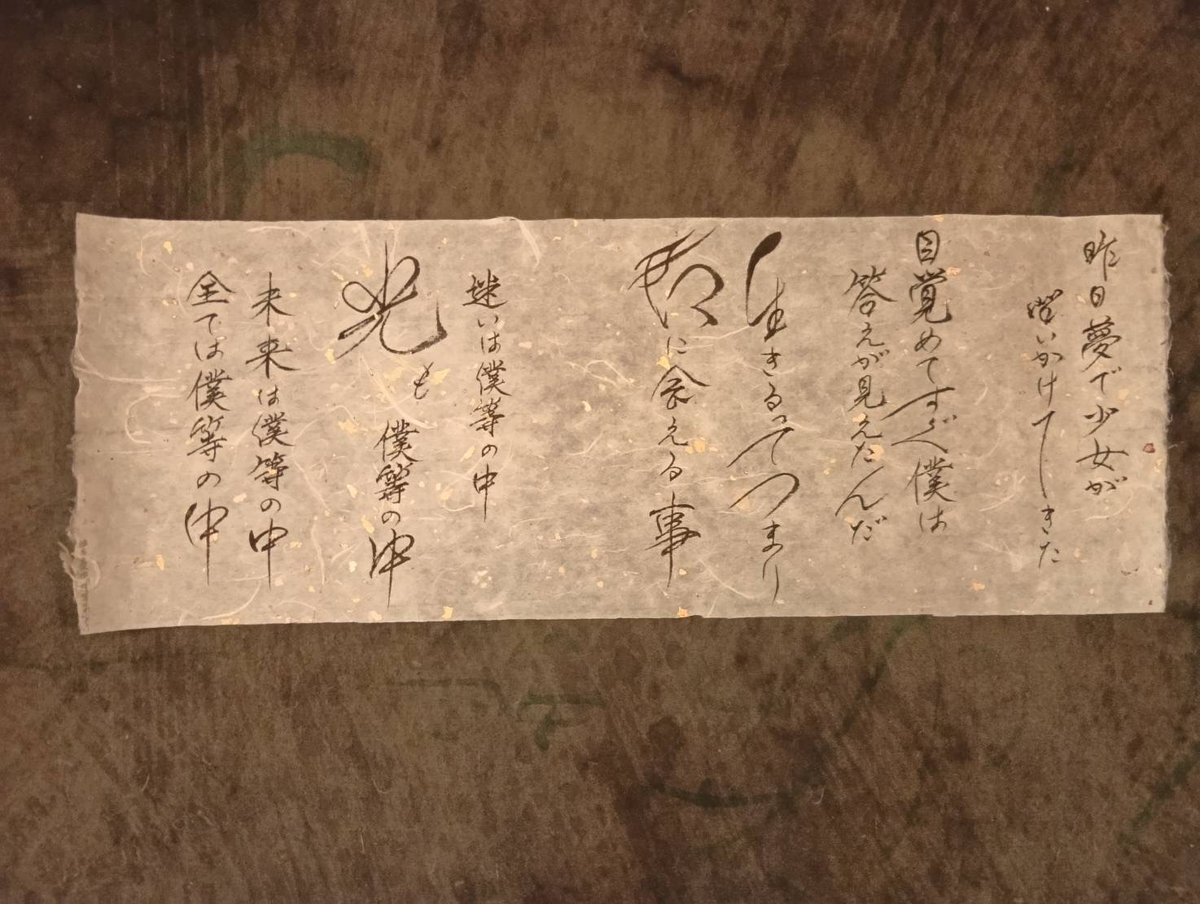 昨日夢で少女が
問いかけてきた
目覚めてすぐ僕は
答えが見えたんだ
生きるってつまり
君に会える事
迷いは僕等の中
光も僕等の中
未来は僕等の中
全ては僕等の中